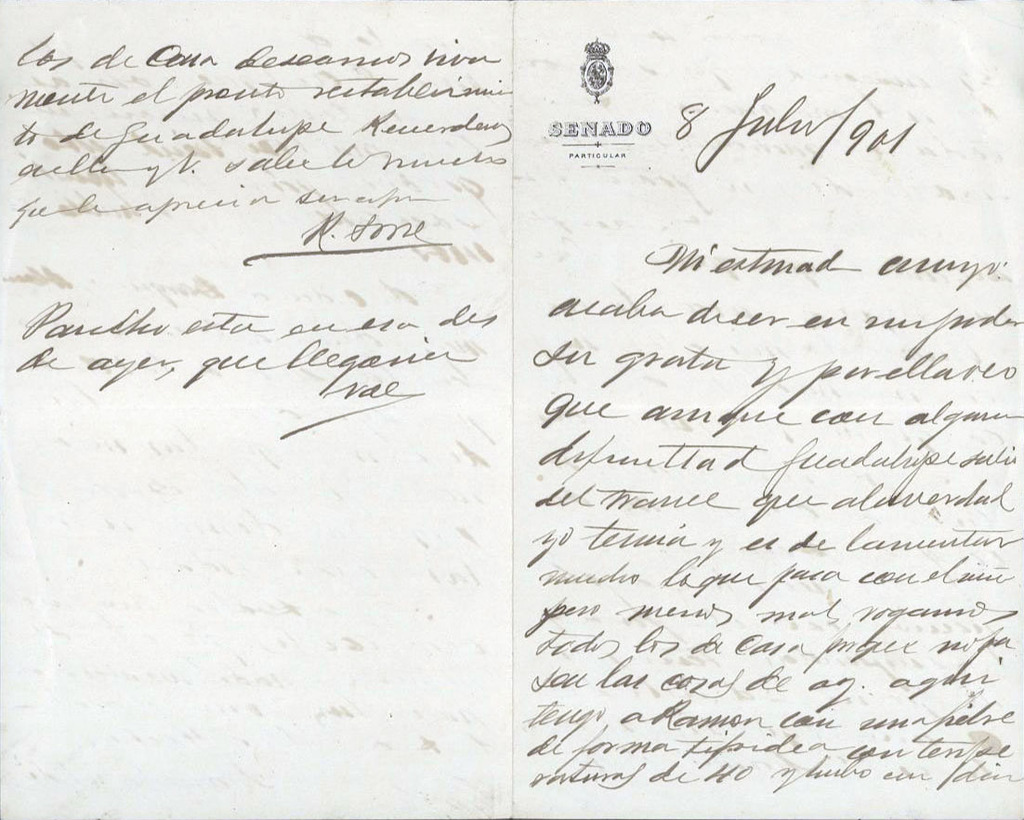 SENADO
PARTICULAR
8 Julio/901
Mi estimad amigo:
acaba de ser en mi poder
su grata y por ella veo
que aunque con alguna
dificultad Guadalupe salio
del trance que a la verdad
yo temia y es de lamentar
mucho lo que pasa con el niñ
pero menos mal, rogamos
todos los de casa porque no pa
sen las cosas de ay. aqui
tengo a Ramon con una fiebre
de forma tifoidea con tempe
raturas de 40 y hubo un dia
los de casa deseamos viva
mente el pronto restablecimien
to de Guadalupe Recuerdos
a ella y V. sabe lo mucho
que le aprecia su afmo
Pancho esta en esa des
de ayer, que llegaria
Vale